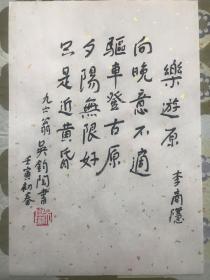 樂遊原
李商隱
向晚意不適
驅車登古原
夕陽無限好
只是近黄昏
九六翁吳鈞陶書
壬寅初春